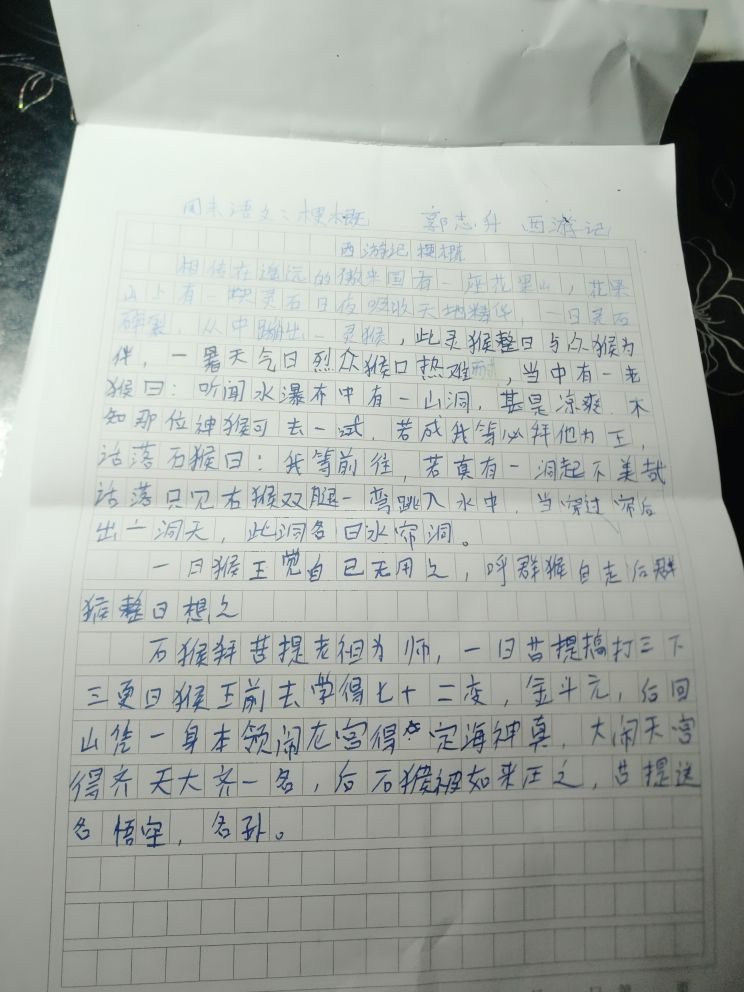 周末语文:梗概 郭志升 西游记
西游记梗概
相传在遥远的傲来国有一座花果山,花果
山上有一块灵石日夜吸收天地精华,一日灵石
碎裂,从中蹦出一灵猴,此灵猴整日与众猴为
伴,一暑天气日烈众猴口热难耐,当中有一老
猴曰:听闻水瀑布中有一山洞,甚是凉爽.不
知那位神猴可去一试,若成我等必拜他为王,
话落石猴曰:我等前往,若真有一洞起不美哉
话落只见右猴双腿一弯跳入水中,当穿过帘后
出一洞天,此洞名曰水帘洞。
一日猴王觉自己无用之,呼群猴自走后群
猴整日想之
石猴拜菩提老祖为师,一日菩提搞打三下
三更日猴王前去学得七十二变,金斗元,后回
山凭一身本领闹龙宫得定海神真,大闹天宫
得齐天大齐一名,后石猴被如来压之,菩提送
名悟空,名孙。